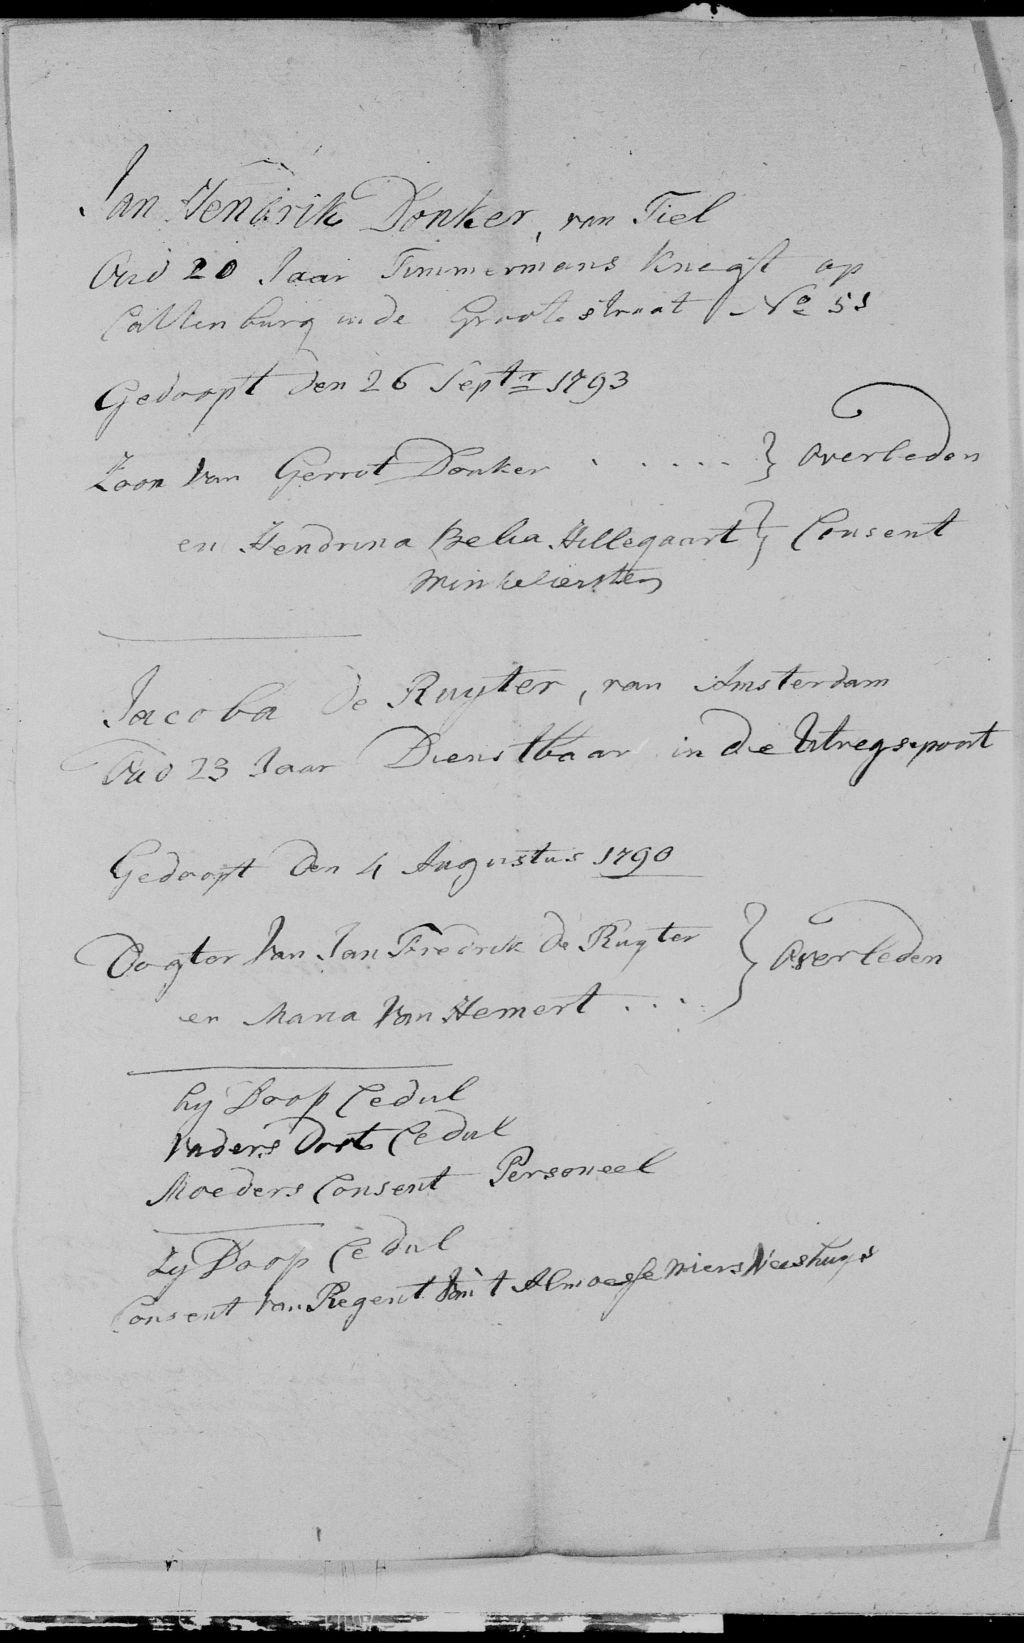 Jan Hendrik Donker, van Tiel
Oud 20 Jaar Timmermans Knegt op
Cattenburg in de Groote straat No 51
Gedoopt den 26 Septr 1793
Zoon Van Gerrit Donker . . . . . } Overleden
en Hendrina Belia Hillegaart } Consent
Jacoba de Ruyter, van Amsterdam
Oud 23 Jaar Dienstbaar in de Utregsepoort
Gedoopt den 4 Augustus 1790
Dogter Van Jan Fredrik de Ruyter } Overleden
en Maria Van Hemert . . . .
hy Doop Cedul
Vaders Doot Cedul
Moeders Consent Personeel
Zy Doop Cedul
Consent Van Regent Van t Almoesseniers Weeshuys